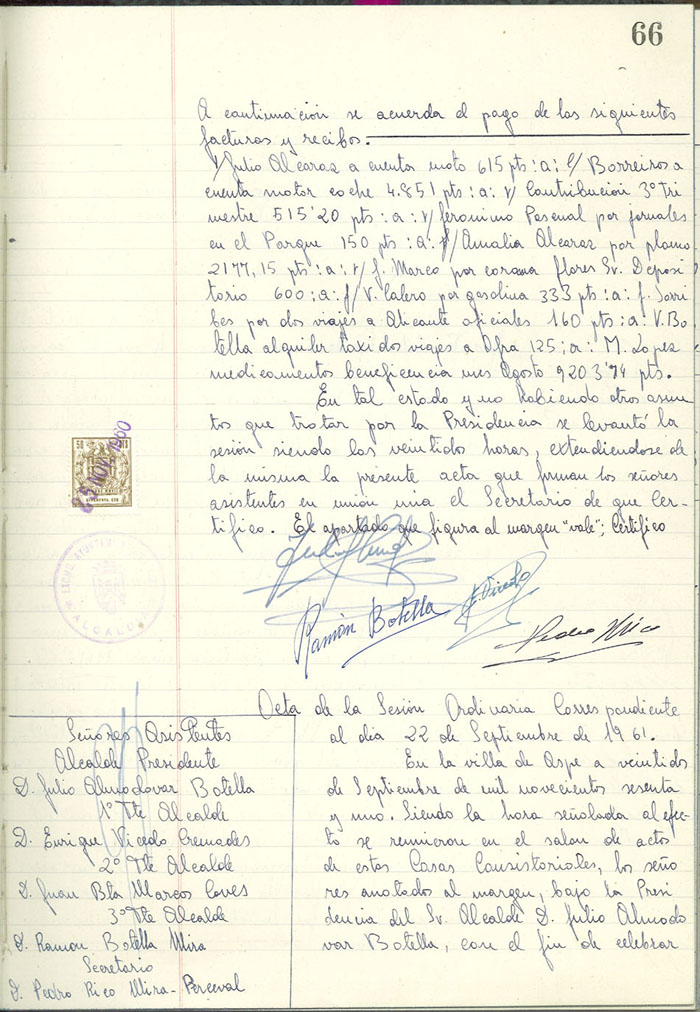 66
A continuación se acuerda el pago de las siguientes
facturas y recibos.
Julio Alcaraz a cuenta moto 615 pts :a: Borreiros a
cuenta motor coche 4.851 pts :a: Contribucion 3º Tri
mestre 515'20 pts :a: Jeronimo Pascual por jornales
en el Parque 150 pts :a: Amalia Alcaraz por plano
2177,15 pts :a: J. Marco por corona flores Sr. Deposi
tario 600 :a: V. Calero por gasolina 333 pts :a: J. Sorri
bes por dos viajes a Alicante oficiales 160 pts :a: V. Bo
tella alquiler taxi dos viajes a 125 ;a: M. Lopez
medicamentos beneficencia mes Agosto 920 3'74 pts.
En tal estado y no habiendo otros asun
tos que tratar por la Presidencia se levantó la
sesión siendo las veintidos horas, extendiendose de
la misma la presente acta que firman los señores
asistentes en unión mia el Secretario de que Cer-
tifico. El apartado que figura al margen "vale"; Certifico
25 NOV. 1960
ALCALDIA
Ramón Botella
E. Vicedo
Pedro Rico
Acta de la Sesión Ordinaria Correspondiente
al dia 22 de Septiembre de 1961.
En la villa de Aspe a veintidos
de Septiembre de mil novecientos sesenta
y uno. Siendo la hora señalada al efec
to se reunieron en el salon de actos
de estas Casas Consistoriales, los seño
res anotados al margen, bajo la Presi
dencia del Sr. Alcalde D. Julio Almodo
var Botella, con el fin de celebrar
Señores Asistentes
Alcalde Presidente
D. Julio Almodovar Botella
1º Tte Alcalde
D. Enrique Vicedo Cremades
2º Tte Alcalde
D. Juan Bta Marcos Caves
3º Tte Alcalde
D. Ramon Botella Mira
Secretario
D. Pedro Rico Mira-Perceval